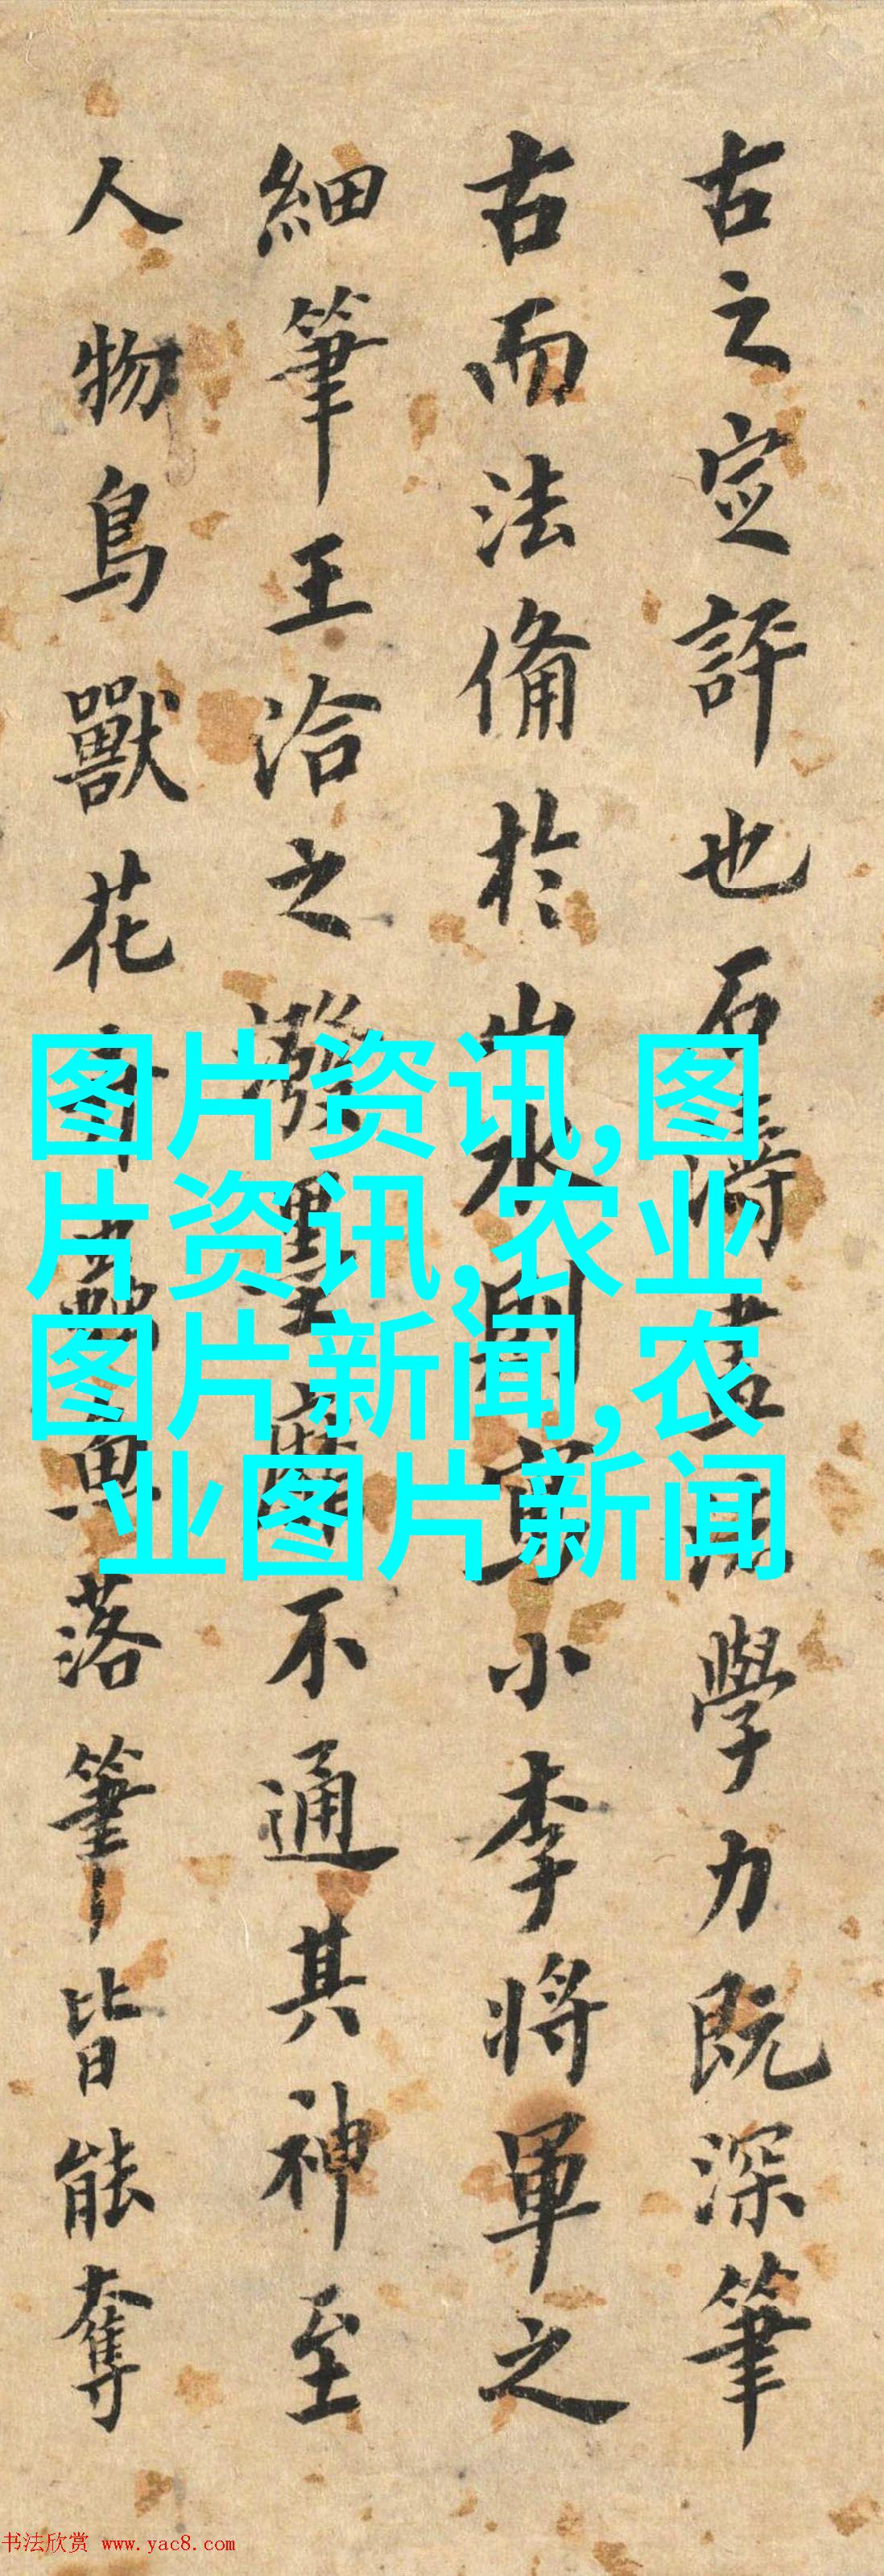 古之定評也石濤畫法學力既深筆
古而法備於山水則寫小李將軍之
細筆王洽之潑墨靡不通其神至
人物鳥獸花卉蟲魚落筆皆能奪
图片资讯,图
片资讯,农业
图片新闻,农
业图片新闻
书法欣赏 www.yac8.com